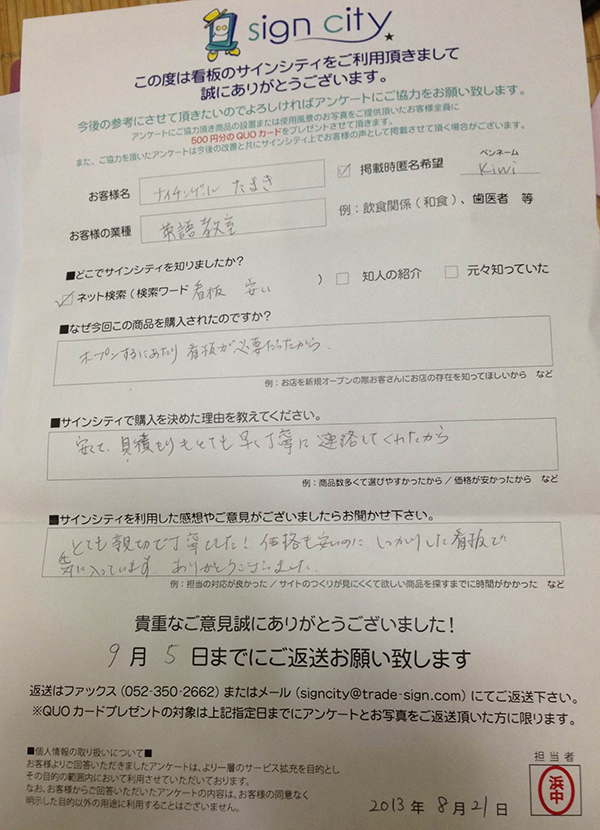 sign city
この度は看板のサインシティをご利用頂きまして
誠にありがとうございます。
今後の参考にさせて頂きたいのでよろしければアンケートにご協力をお願い致します。
アンケートにご協力頂き商品の設置または使用風景のお写真をご提供頂いたお客様全員に
500円分のQUOカードをプレゼントさせて頂きます。
また、ご協力を頂いたアンケートは今後の改善と共にサインシティ上でお客様の声として掲載させて頂く場合がございます。
お客様名 ナイチンゲール たまき
掲載時匿名希望 ペンネーム Kiwi
お客様の業種 英語教室
例：飲食関係(和食)、歯医者 等
■どこでサインシティを知りましたか？
ネット検索(検索ワード 看板 安い ) 知人の紹介 元々知っていた
■なぜ今回この商品を購入されたのですか？
オープンするにあたり看板が必要だったから
例：お店を新規オープンの際お客さんにお店の存在を知ってほしいから など
■サインシティで購入を決めた理由を教えてください。
安くて、見積もりもとても早く丁寧に連絡してくれたから
例：商品数多くて選びやすかったから / 価格が安かったから など
■サインシティを利用した感想やご意見がございましたらお聞かせ下さい。
とても親切で丁寧でした！価格も安いのにしっかりした看板で
気に入っています ありがとうございました
例：担当の対応が良かった / サイトのつくりが見にくくて欲しい商品を探すまでに時間がかかった など
貴重なご意見誠にありがとうございました！
9月5日までにご返送お願い致します
返送はファックス(052-350-2662)またはメール(signcity@trade-sign.com)にてご返送下さい。
※QUOカードプレゼントの対象は上記指定日までにアンケートとお写真をご返送頂いた方に限ります。
■個人情報の取り扱いについて■
お客様よりご回答いただきましたアンケートは、より一層のサービス拡充を目的とし
その目的の範囲内において利用させていただいております。
なお、お客様からご回答いただいたアンケートの内容は、お客様の同意なく
明示した目的以外の用途に利用することはございません。
担当者
浜中
2013年8月21日